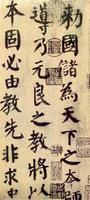 勅國儲為天下之本師
導乃元良之教將以
本固必由教先非求